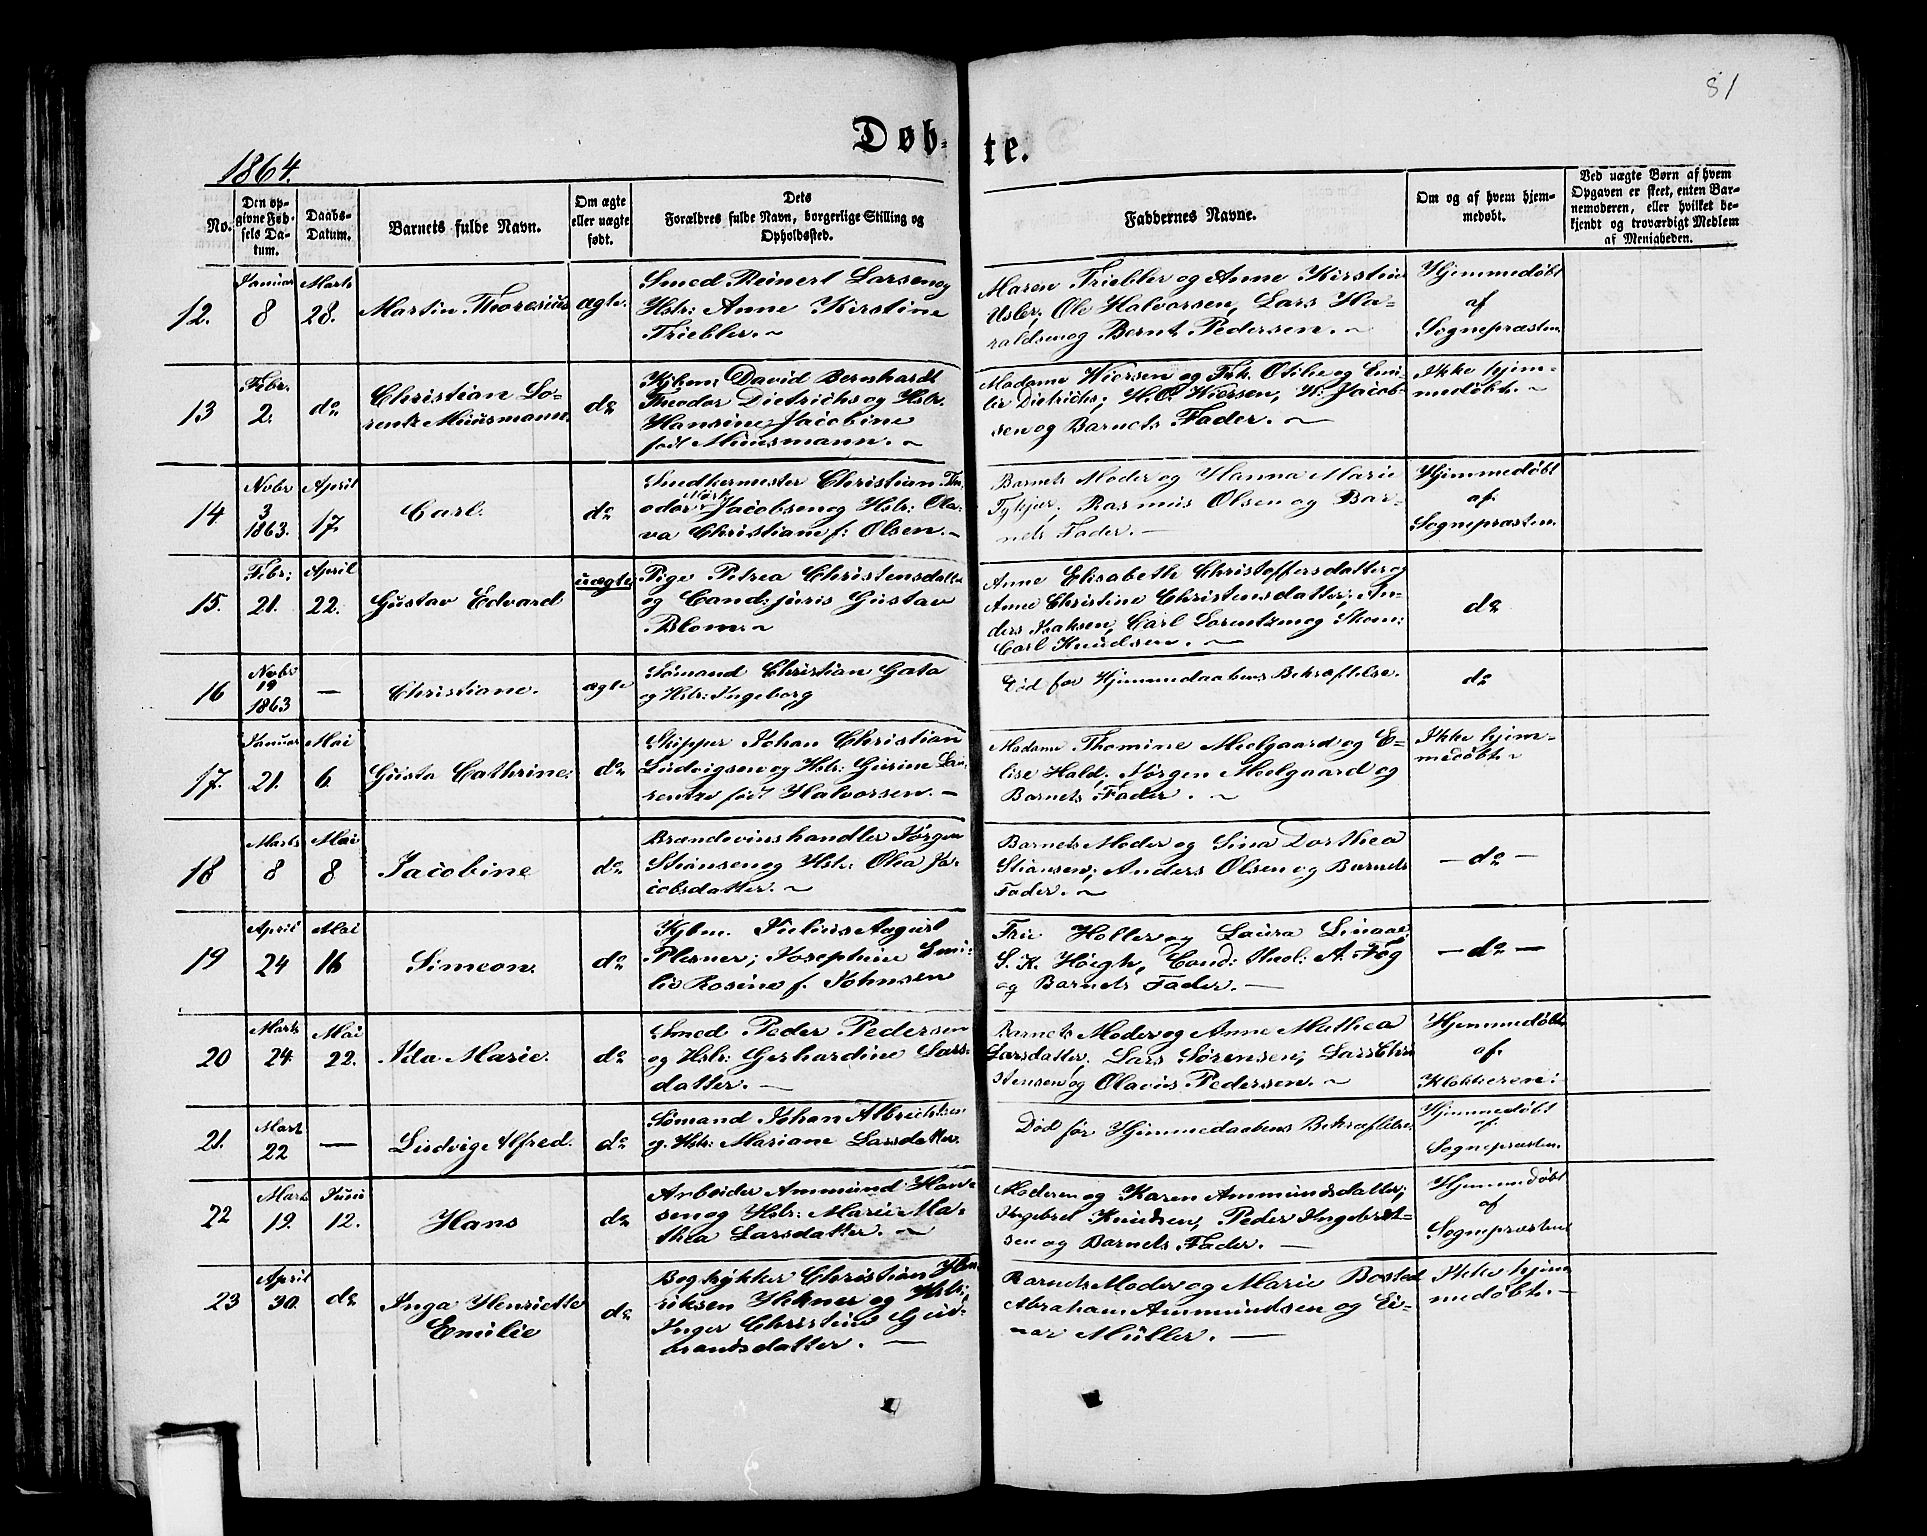 81
Døb-
te.
1864.
No.
Den op-
givne Føds-
sels Da-
tum.
Daabs-
Datum.
Barnets fulde Navn.
Om ægte
eller uægte
født.
Dets
Forældres fulde Navn, borgerlige Stilling og
Opholdssted.
Faddernes Navne.
Om og af hvem hjem-
medøbt.
Ved uægte Børn af hvem
Opgaven er skeet, enten Bar-
nemoderen, eller hvilket be-
kjendt og troværdigt Medlem
af Menigheden.
12.
Januar
8
Marts
28.
Martin Thoresius
ægte.
Smed Reinert Larsen og
Hstr: Anne Kirstine
Friebler. ~
Maren Friebler og Anne Kirstine
Usler; Ole Halvorsen, Lars Ha-
raldsen og Bernt Pedersen. ~
Hjemmedøbt
af
Sognepræsten
13
Febr.
2.
do
Christian Lo-
rentz Muusmann.
do
Kjbm: David Bernhardt
Theodor Dietrichs og Hstr.
Hansine Jacobine
født Muusmann. ~
Madame Wiersen og Frk. Otilie og Emi-
lie Dietrichs; H. O. Wiersen, H. Jacob-
sen og Barnets Fader. ~
Ikke hjem-
medøbt. ~
14
Novbr
3
1863.
April
17.
Carl.
do
Snedkermester Christian The-
odor Mørk Jacobsen og Hstr: Ola-
va Christiane f: Olsen. ~
Barnets Moder og Hanna Marie
Rasmus Olsen og Bar-
nets Fader. —
Hjemmedøbt
af
Sognepræsten
15.
Febr:
21.
April
22.
Gustav Edvard
uægte
Pige Petrea Christensdatter
og Cand: juris Gustav
Blom. ~
Anne Elisabeth Christoffersdatter og
Anne Christine Christensdatter; An-
ders Isaksen, Carl Lorentzen og Skom:
Carl Knudsen. ~
do
16
Novbr
19
1863
—
Christiane.
ægte
Sømand Christian Gata
og Hstr: Ingeborg
Død før Hjemmedaabens Bekræftelse.
do
17.
Januar
21.
Mai
6.
Gusta Cathrine.
do
Skipper Johan Christian
Ludvigsen og Hstr: Gurine Lau-
rentze født Halvorsen. —
Madame Thomine Moelgaard og E-
lise Hald; Jørgen Moelgaard og
Barnets Fader. ~
Ikke hjem-
medøbt. ~
18
Marts
8
Mai
8
Jacobine
do
Brændeviinshandler Jørgen
Stiansen og Hstr: Olea Ja-
cobsdatter. ~
Barnets Moder og Sina Dorthea
Stiansen; Anders Olsen og Barnets
Fader. ~
— do —
19
April
24
Mai
16
Simeon.
do
Kjbm. Julius August
Plesner; Josephine Emi-
lie Rosine f. Johnsen
Frue Holler og Laura Linaae
S. K. Høegh, Cand: theol: A. Fog
og Barnets Fader. —
— do —
20
Marts
24.
Mai
22.
Ida Marie.
do
Smed Peder Pedersen
og Hstr: Gerhardine Lars-
datter. —
Barnets Moder og Anne Mathea
Larsdatter; Lars Sørensen, Lars Chri
stensen og Olavus Pedersen. ~
Hjemmedøbt
af
Klokkeren:
21.
Marts
22
—
Ludvig Alfred.
do
Sømand Johan Albrechtsen
og Hstr: Mariane Larsdatter.
Død før Hjemmedaabens Bekræftelse.
Hjemmedøbt
af
Sognepræsten.
22
Marts
19.
Juni
12.
Hans
do
Arbeider Ammund Han-
sen og Hstr: Marie Ma-
thea Larsdatter. ~
Moderen og Karen Ammundsdatter;
Ingebret Knudsen, Peder Ingebret-
sen og Barnets Fader. —
Hjemmedøbt
af
Sognepræsten
23
April
30.
do
Inga Henriette
Emilie
do
Bogtrykker Christian Hen-
riksen Hekner og Hstr;
Inger Christine Gul-
brandsdatter. —
Barnets Moder og Marie Bosted
Abraham Ammundsen og Ei-
nar Müller. —
Ikke hjem
medøbt. —